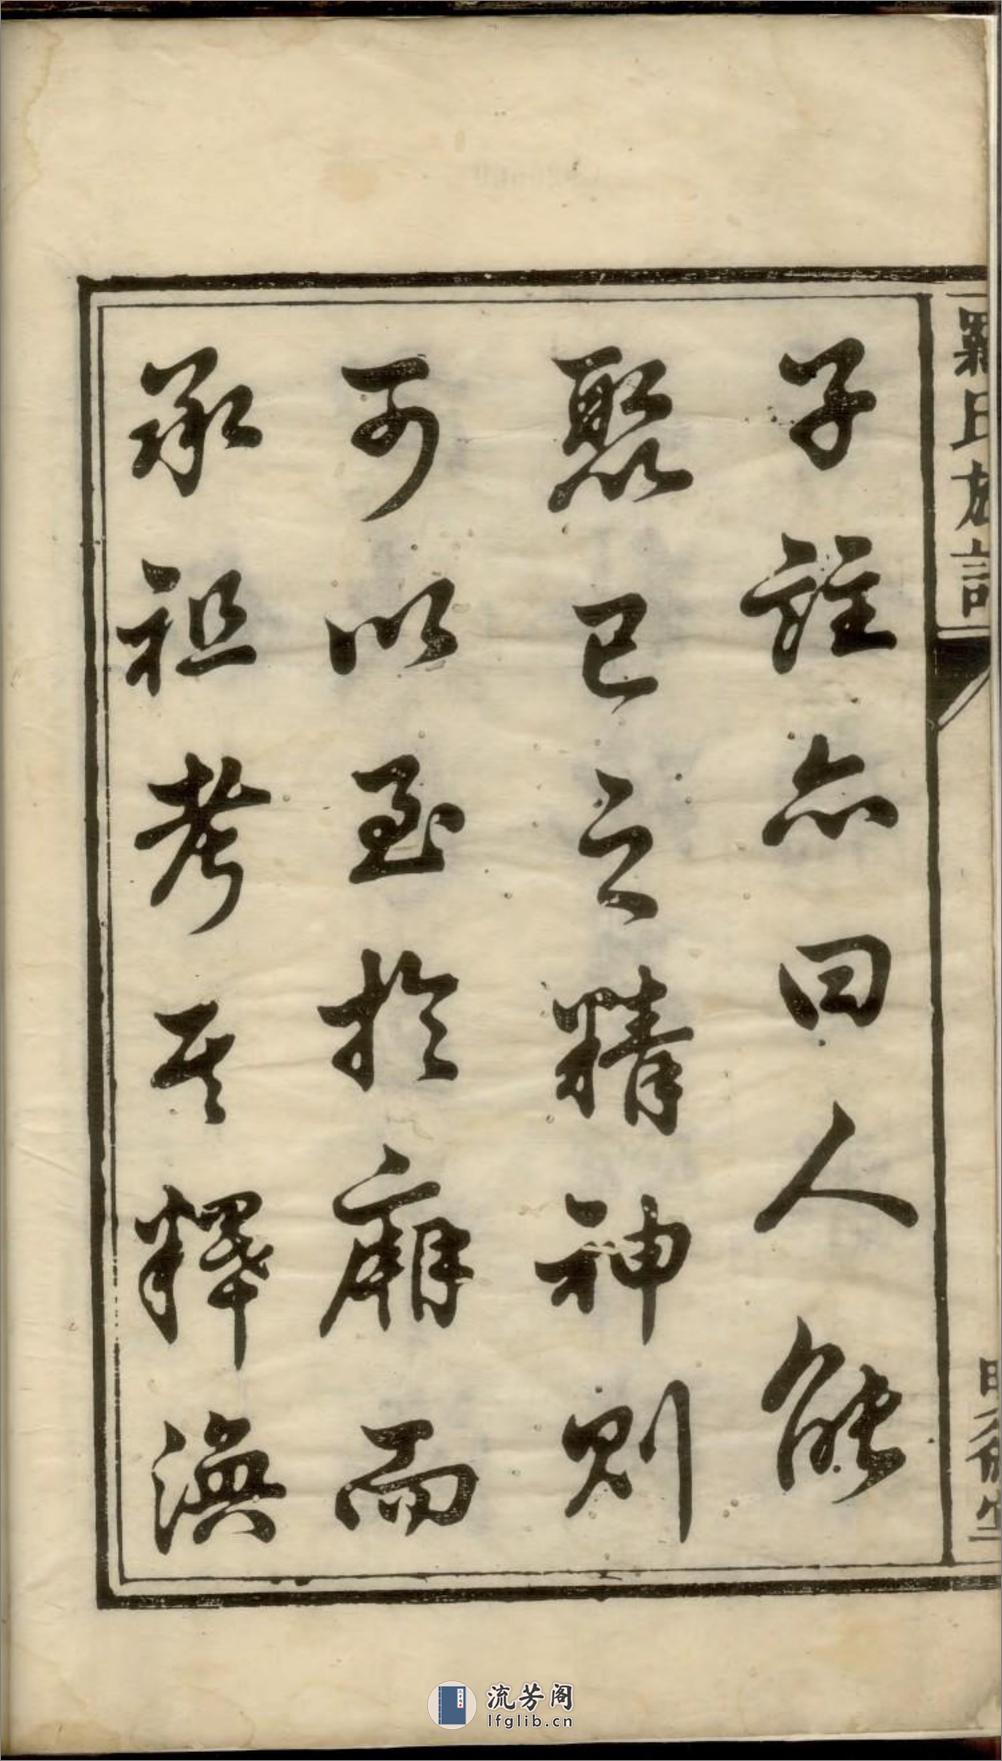 羅氏族譜
子註亦曰人能
聚已之精神則
可以至於廟而
承祖考其釋渙
流芳阁
lfglib.cn